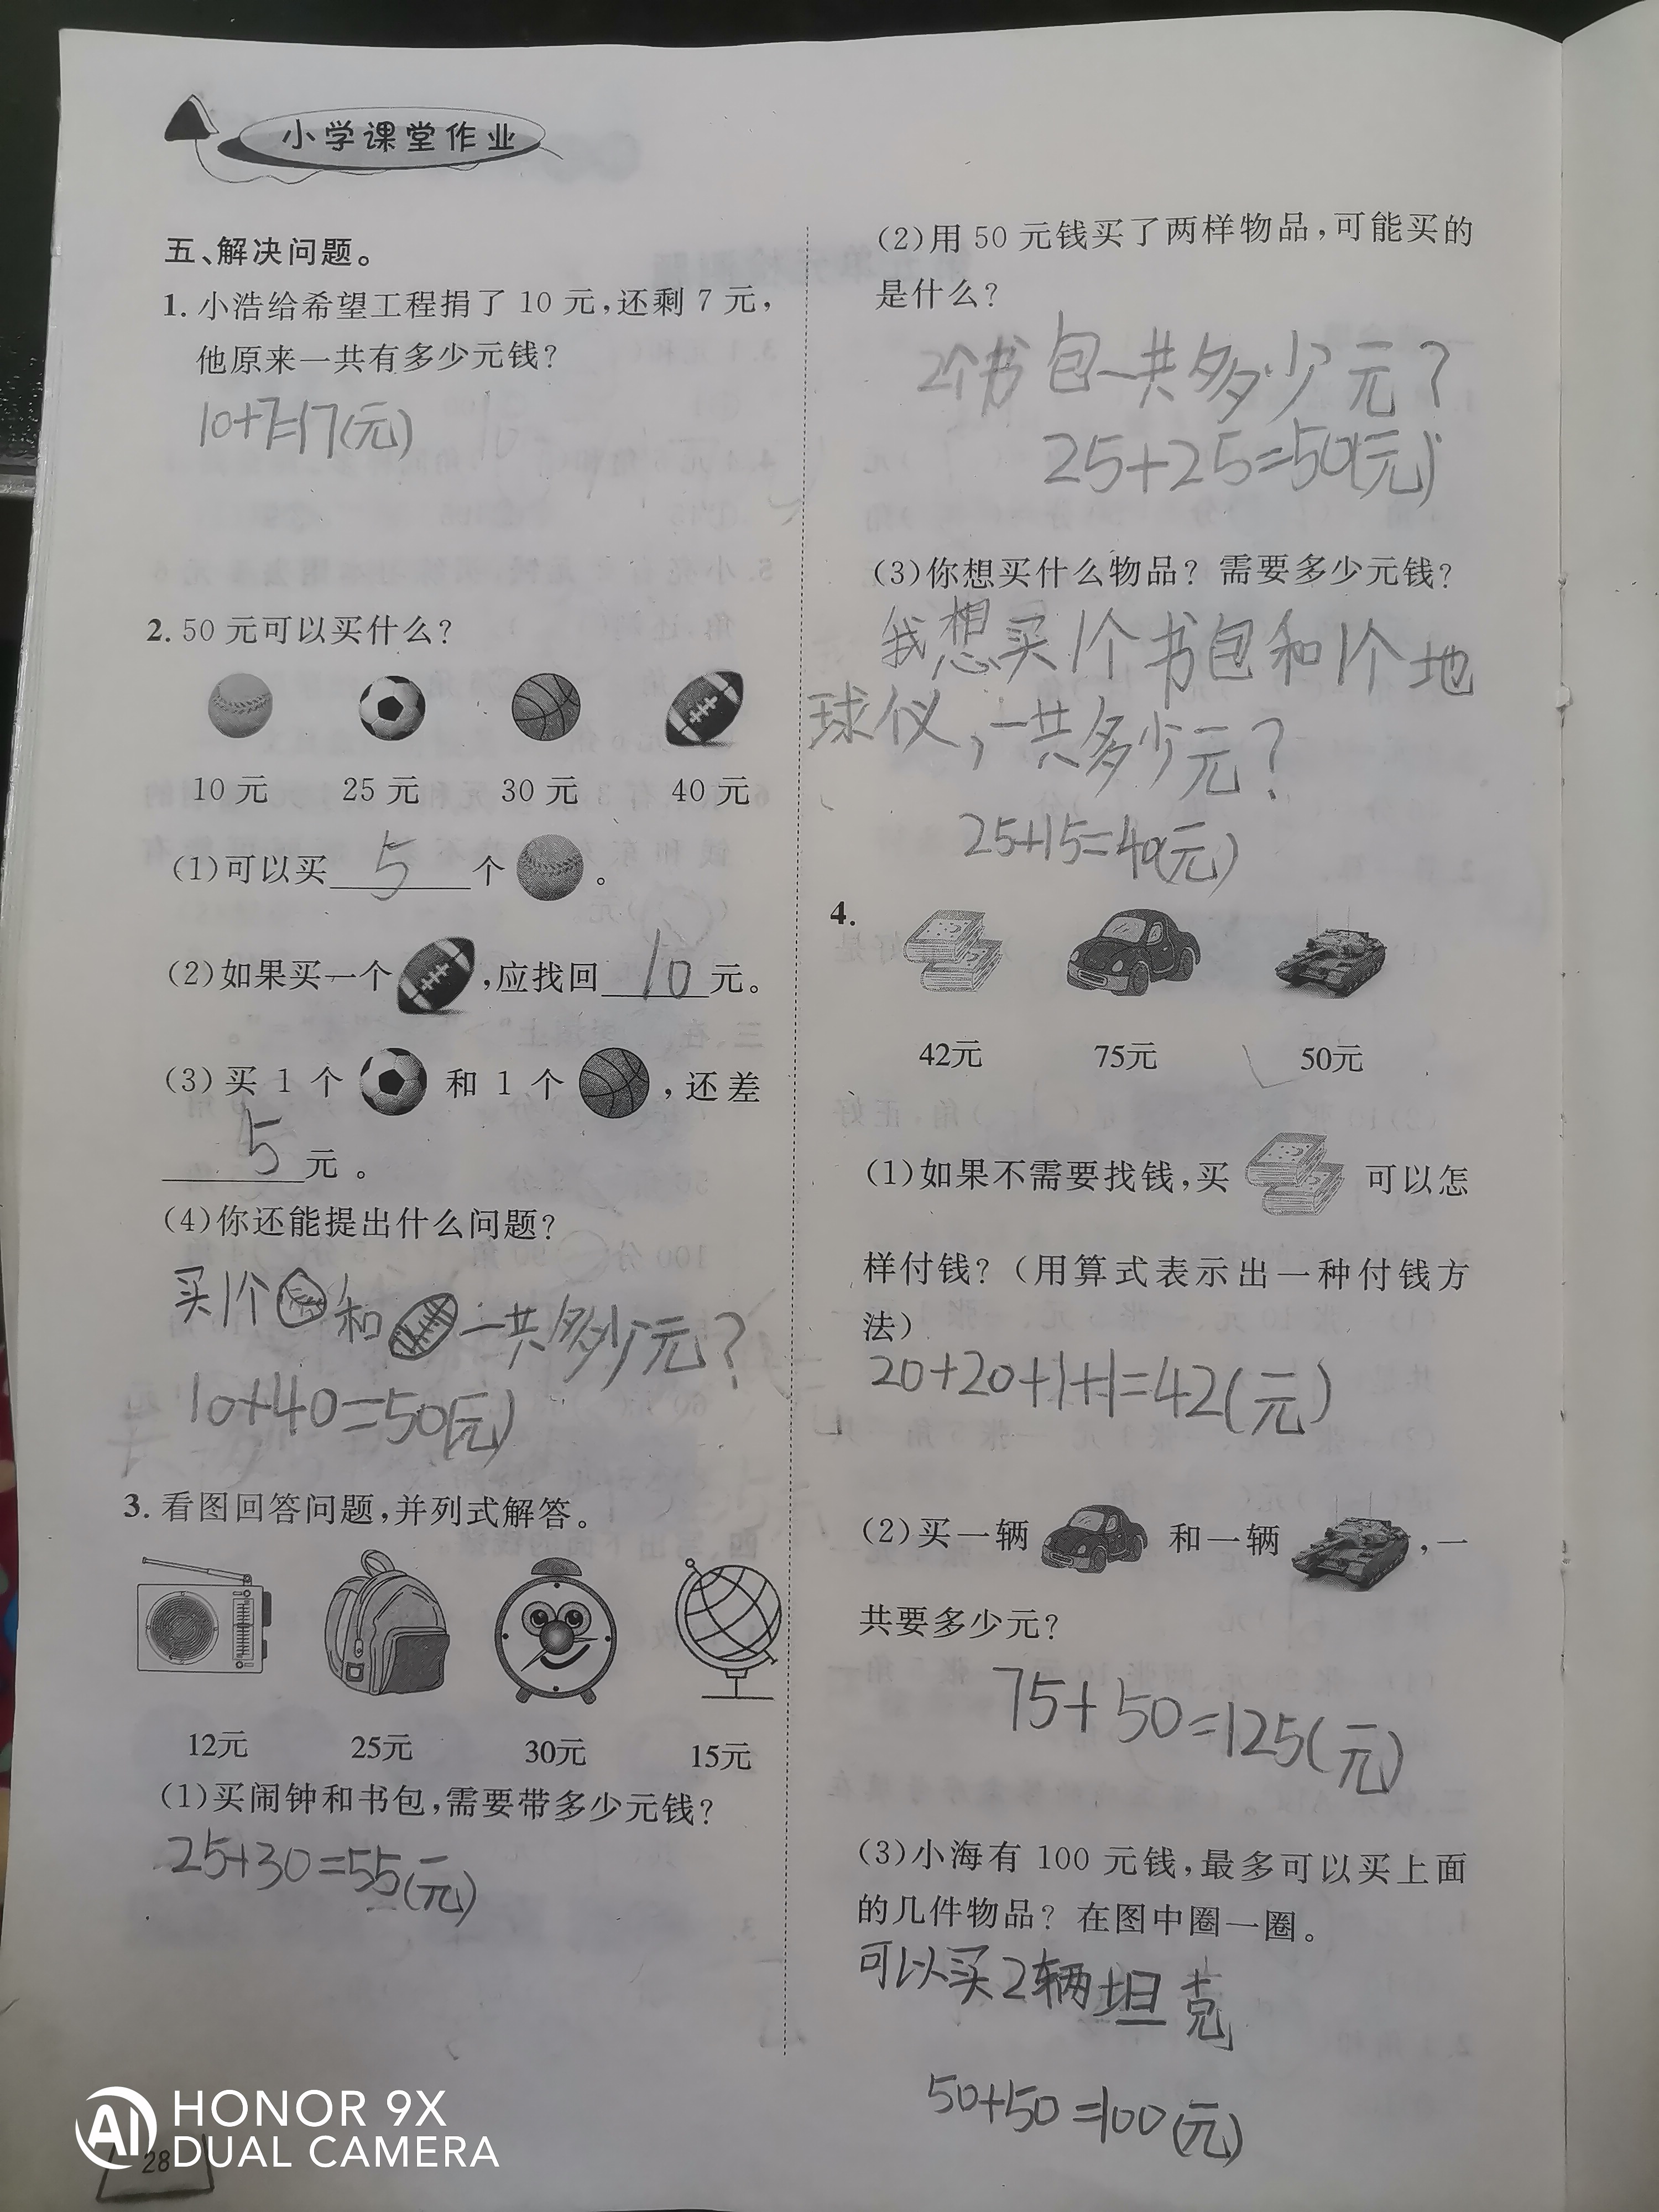 小学课堂作业
五、解决问题。
1. 小浩给希望工程捐了 10 元,还剩 7 元,
他原来一共有多少元钱?
10+7=17(元)
2. 50 元可以买什么?
10 元 25 元 30 元 40 元
(1)可以买 5 个 。
(2)如果买一个 ,应找回 10 元。
(3)买 1 个 和 1 个 ,还差
5 元。
(4)你还能提出什么问题?
买1个 和 一共多少元?
10+40=50(元)
3. 看图回答问题,并列式解答。
12元 25元 30元 15元
(1)买闹钟和书包,需要带多少元钱?
25+30=55(元)
(2)用 50 元钱买了两样物品,可能买的
是什么?
2个书包一共多少元?
25+25=50(元)
(3)你想买什么物品? 需要多少元钱?
我想买1个书包和1个地
球仪,一共多少元?
25+15=40(元)
4.
42元 75元 50元
(1)如果不需要找钱,买 可以怎
样付钱?(用算式表示出一种付钱方
法)
20+20+1+1=42(元)
(2)买一辆 和一辆 ,一
共要多少元?
75+50=125(元)
(3)小海有 100 元钱,最多可以买上面
的几件物品? 在图中圈一圈。
可以买2辆坦克
50+50=100(元)
28
AI HONOR 9X
DUAL CAMERA